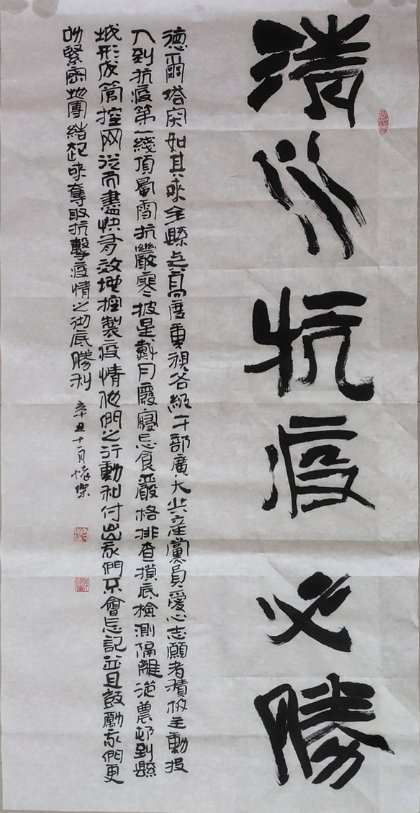 清水抗疫必勝
德爾塔突如其來全縣高度重視各級干部廣大共産黨員愛心志願者積極主動投
入到抗疫第一綫頂風雪抗嚴寒披星戴月廢寢忘食嚴格排查摸底檢測隔離從農邨到縣
城形成管控网從而盡快有效地控製疫情他們之行動和付出我們不會忘記並且鼓勵我們更
加緊密地團結起來奪取抗擊疫情之彻底勝利 辛丑十一月